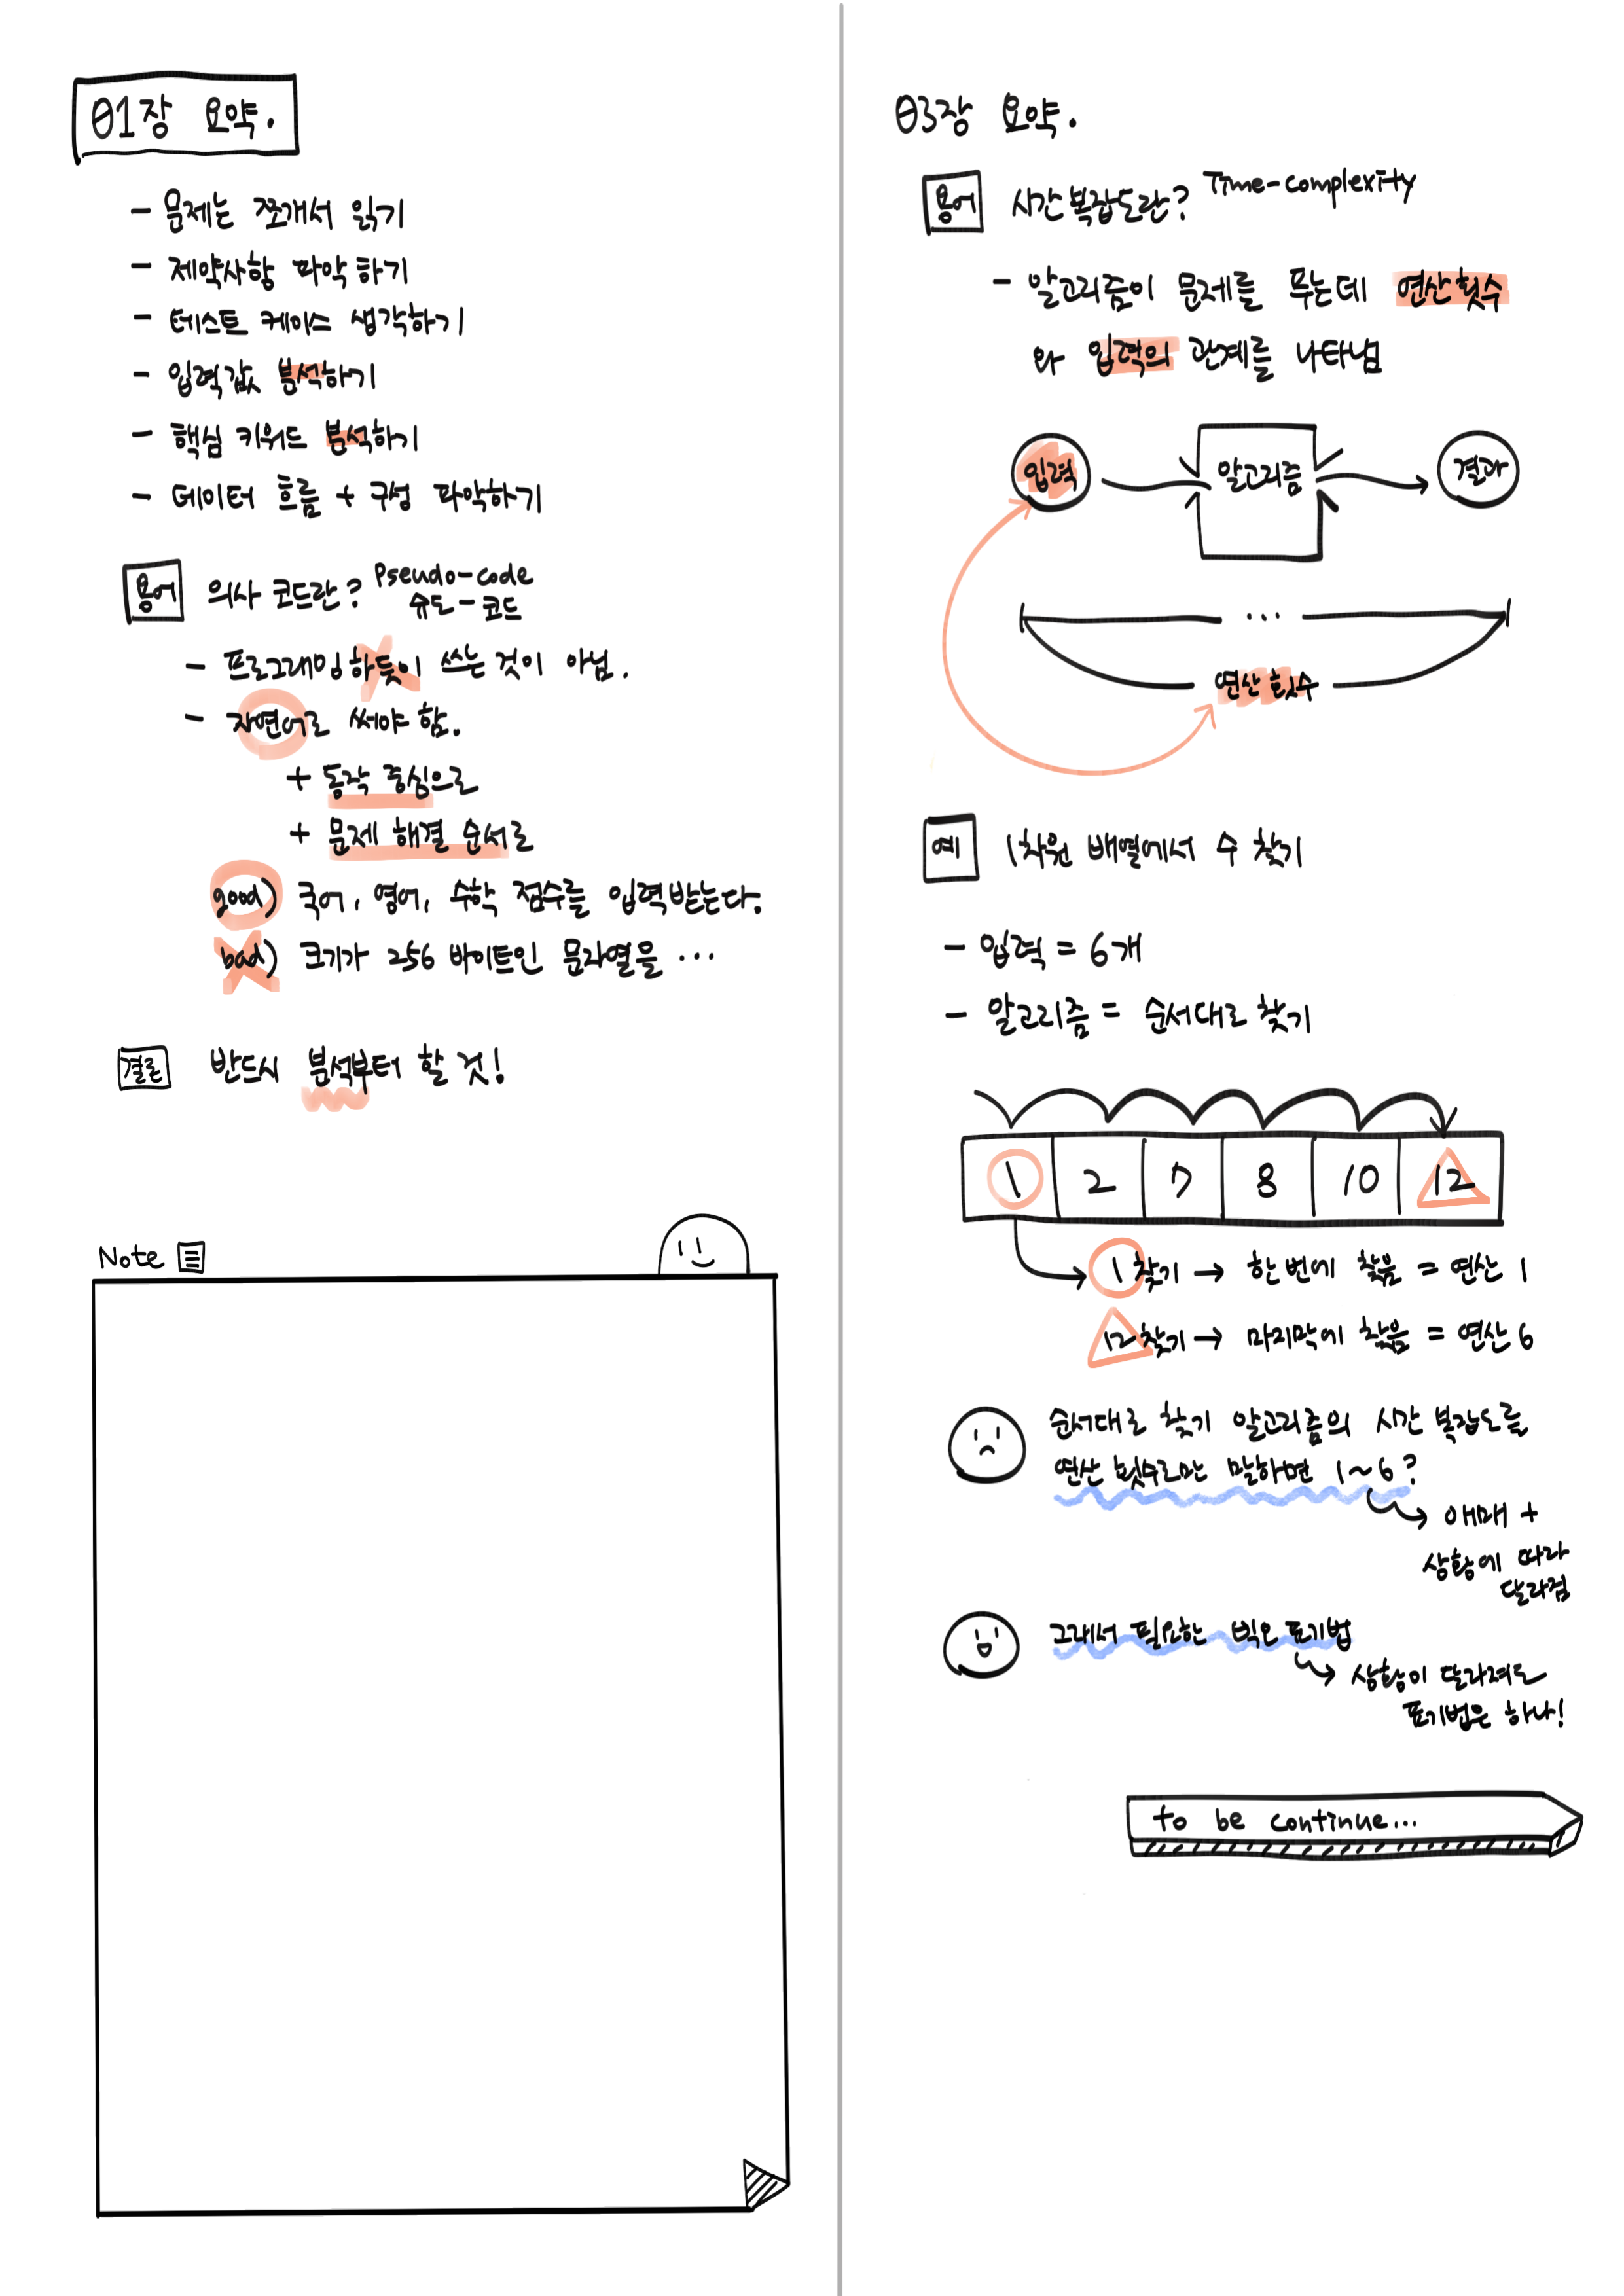 01장 요약.
- 문제는 쪼개서 읽기
- 제약사항 파악하기
- 테스트 케이스 생각하기
- 입력값 분석하기
- 핵심 키워드 분석하기
- 데이터 흐름 + 구성 파악하기
용어 의사 코드란? Pseudo-code
슈도-코드
- 프로그래밍하듯이 쓰는 것이 아님.
- 자연어로 써야 함.
+ 동작 중심으로
+ 문제 해결 순서로
good) 국어, 영어, 수학 점수를 입력받는다.
bad) 크기가 256 바이트인 문자열을 ...
결론 반드시 분석부터 할 것!
Note
03장 요약.
용어 시간 복잡도란? Time-complexity
- 알고리즘이 문제를 푸는데 연산 횟수
와 입력의 관계를 나타냄
입력 알고리즘 결과
...
연산 횟수
예 1차원 배열에서 수 찾기
- 입력 = 6개
- 알고리즘 = 순서대로 찾기
1 2 7 8 10 12
1 찾기 → 한번에 찾음 = 연산 1
12 찾기 → 마지막에 찾음 = 연산 6
순서대로 찾기 알고리즘의 시간 복잡도를
연산 횟수로만 말하면 1~6?
애매 +
상황에 따라
달라짐
그래서 필요한 빅오 표기법
상황이 달라져도
표기법은 하나!
to be continue...